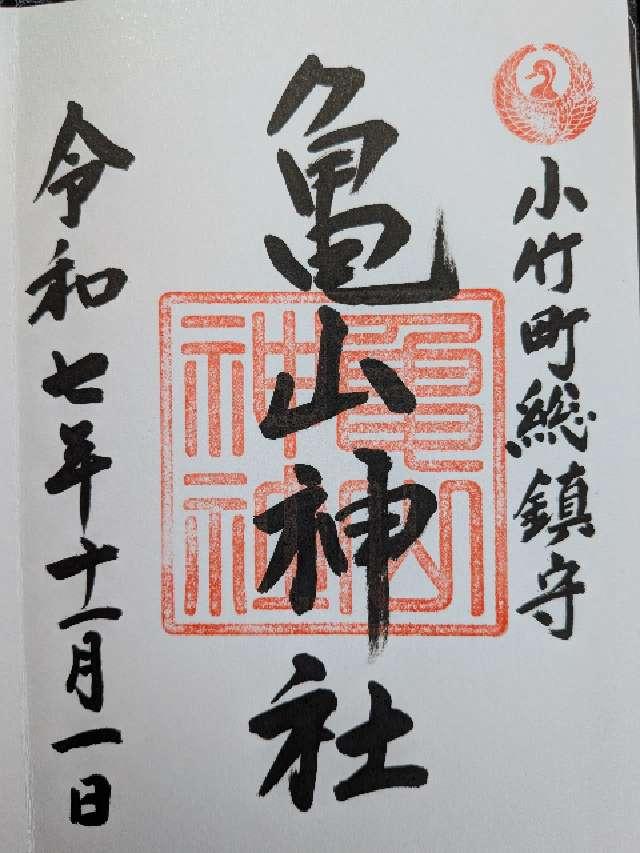 小竹町総鎮守
亀山神社
亀山神社
令和七年十一月一日